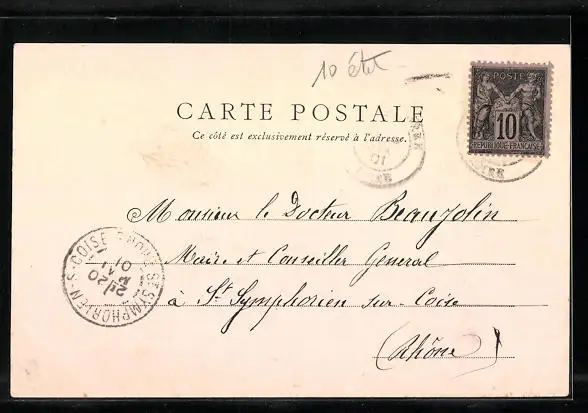 10 état
POSTE
10
REPUBLIQUE FRANÇAISE
CARTE POSTALE
Ce côté est exclusivement réservé à l'adresse.
01
Monsieur le Docteur Beaujolin
Maire et Conseiller General
à St Symphorien sur Coise
(Rhône)
ST SYMPHORIEN-S-COISE RHONE
20
MAI
01